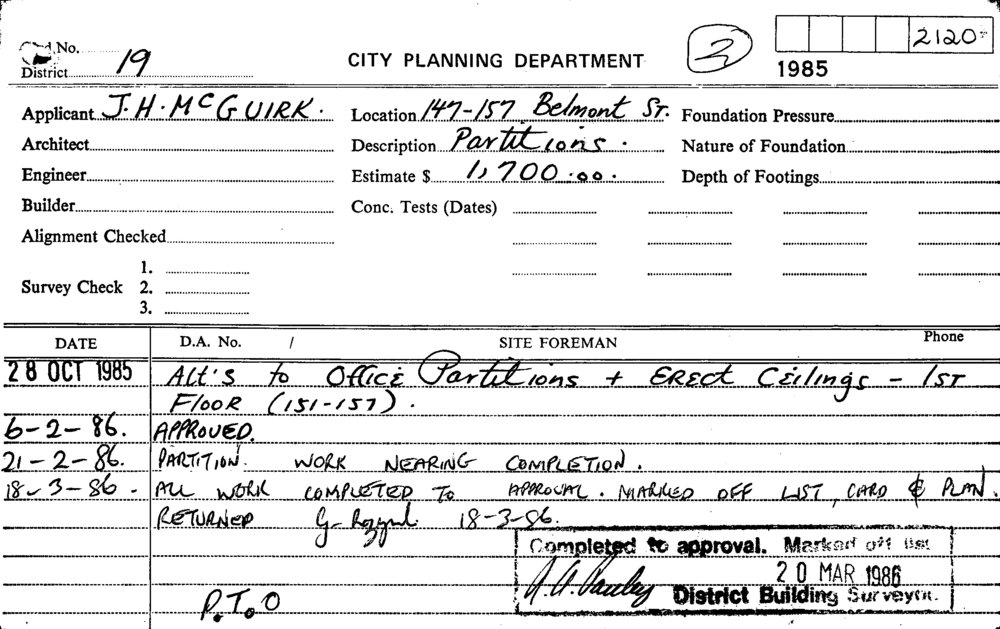 Card No.
District 19
CITY PLANNING DEPARTMENT
2
2120
1985
Applicant J. H. McGUIRK.
Location 147-157 Belmont St.
Foundation Pressure
Architect
Description Partitions.
Nature of Foundation
Engineer
Estimate $ 1,700.00.
Depth of Footings
Builder
Conc. Tests (Dates)
Alignment Checked
Survey Check
1.
2.
3.
DATE D.A. No. / SITE FOREMAN Phone
28 OCT 1985 ALt's to Office Partitions + ERect Ceilings - 1ST
FLOOR (151-157).
6-2-86. APPROVED.
21-2-86. PARTITION WORK NEARING COMPLETION.
18-3-86- ALL WORK COMPLETED TO APPROVAL. MARKED OFF LIST, CARD & PLAN.
RETURNED G. 18-3-86.
Completed to approval. Marked off list
20 MAR 1986
District Building Surveyor.
P.T.O